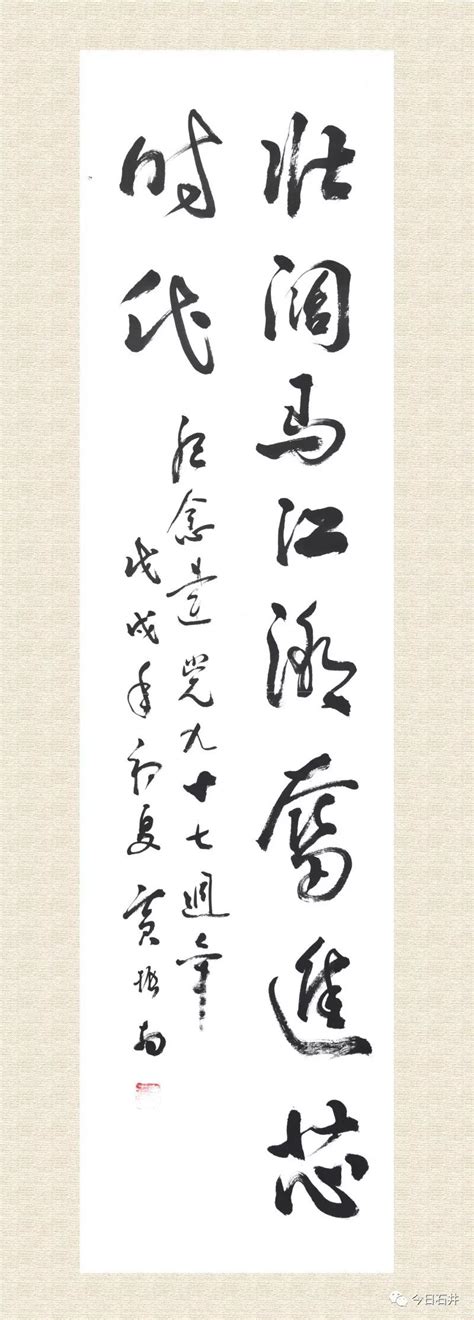 壮阔马江潮奮進芯
时代
纪念建党九十七週年
戊戌年初夏 黄振
今日石井